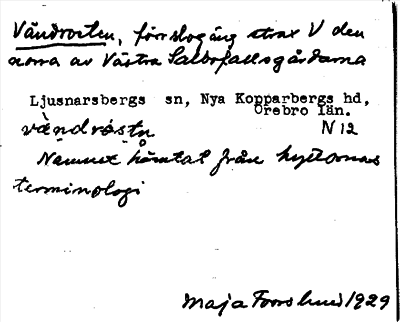 Vändrosten, förr skogäng strax V den
norra av Västra Salbofallsgårdarna
Ljusnarsbergs sn, Nya Kopparbergs hd,
Örebro län.
vä̀ndròstn N 12
Namnet hämtat från hyttornas
terminologi
Maja Forslund 1929